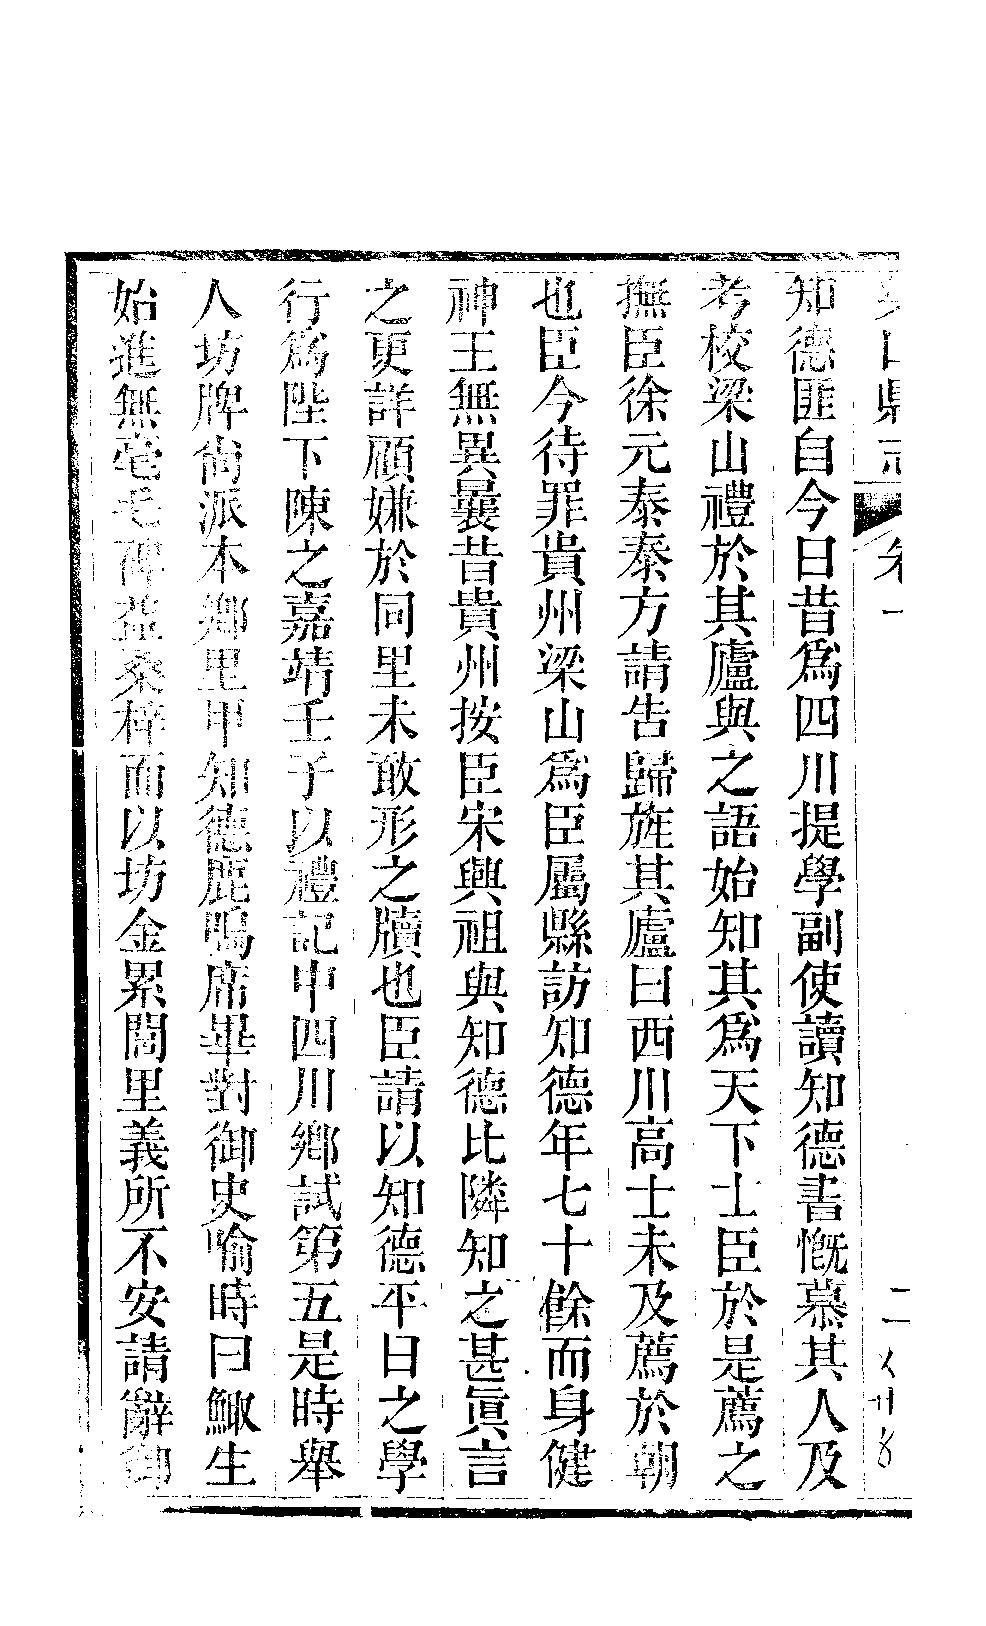 山縣志
卷一
二
知德匪自今日昔爲四川提學副使讀知德書慨慕其人及
考校梁山禮於其廬與之語始知其爲天下士臣於是薦之
撫臣徐元泰泰方請告歸旌其廬曰西川高士未及薦於朝
也臣今待罪貴州梁山爲臣屬縣訪知德年七十餘而身健
神王無異曩昔貴州按臣宋興祖與知德比隣知之甚眞言
之更詳顧嫌於同里未敢形之牘也臣請以知德平日之學
行爲陛下陳之嘉靖壬子以禮記中四川鄉試第五是時舉
人坊牌尙派本鄉里甲知德鹿鳴席畢對御史喻時曰鯫生
始進無毫毛裨益桑梓而以坊金累閭里義所不安請辭御